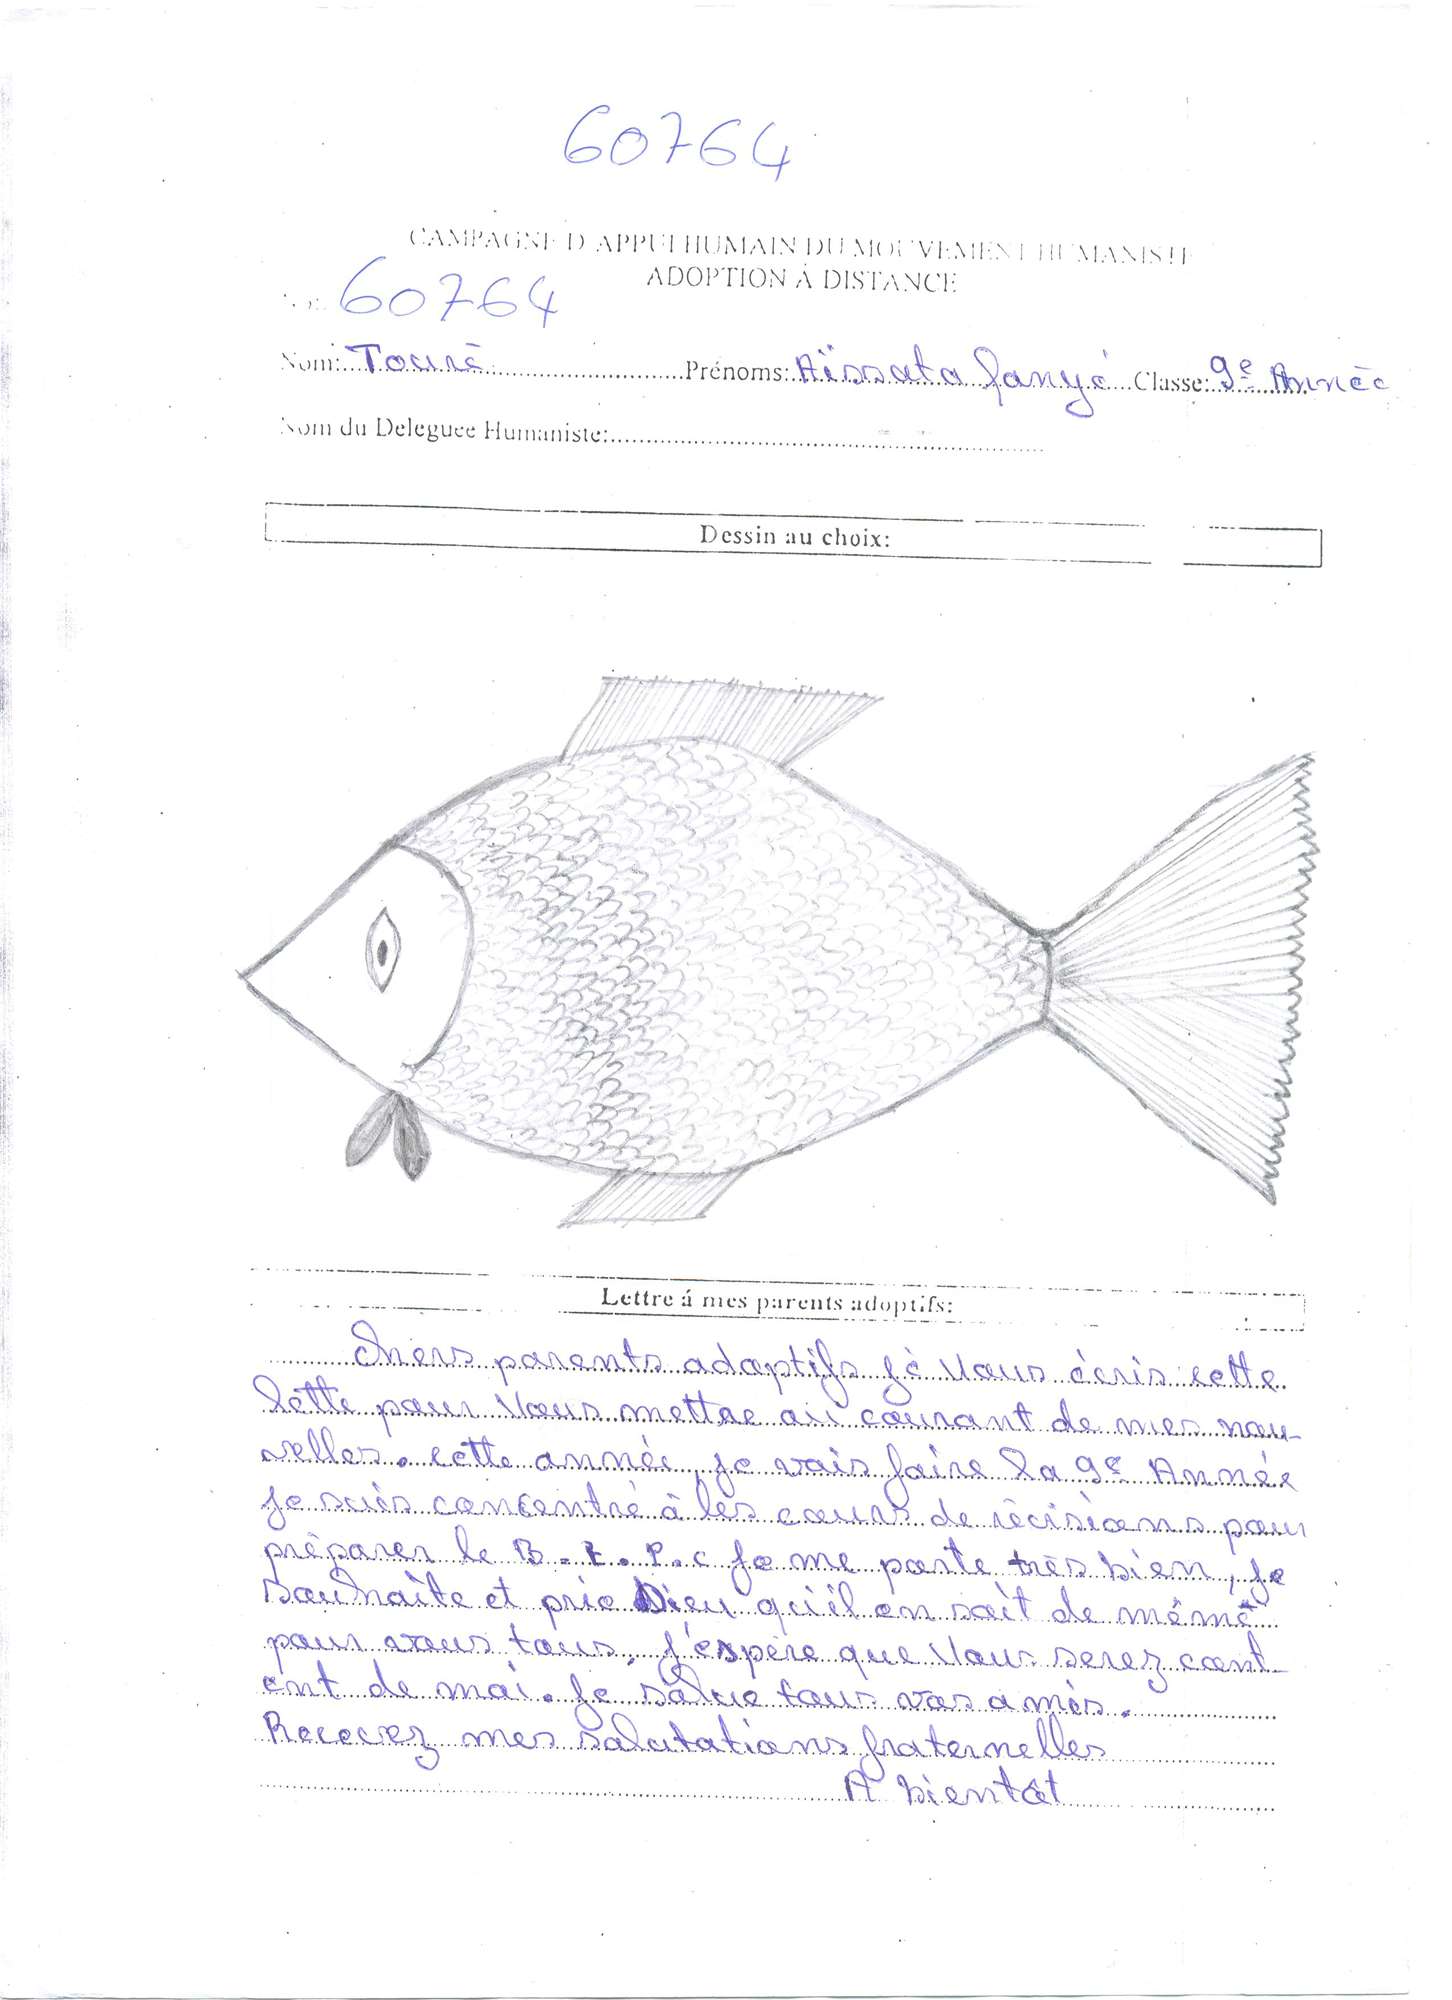 60764
CAMPAGNE D'APPUI HUMAIN DU MOUVEMENT HUMANISTE
ADOPTION À DISTANCE
60764
Nom: Touré Prénoms: Aïssata fanyé Classe: 9e Année
Nom du Deleguee Humaniste:
Dessin au choix:
Lettre á mes parents adoptifs:
Chers parents adoptifs je vous écris cette
lette pour vous mettre au courant de mes nou-
velles. cette année, je vais faire la 9e Année
je suis concentré à les cours de récisions pour
préparer le B.E.P.c je me porte très bien, je
souhaite et prie Dieu qu'il en soit de même
pour vous tous, j'espère que vous serez cont-
ent de moi. je salue tous vos amis.
Recevez mes salutations fraternelles
A bientôt